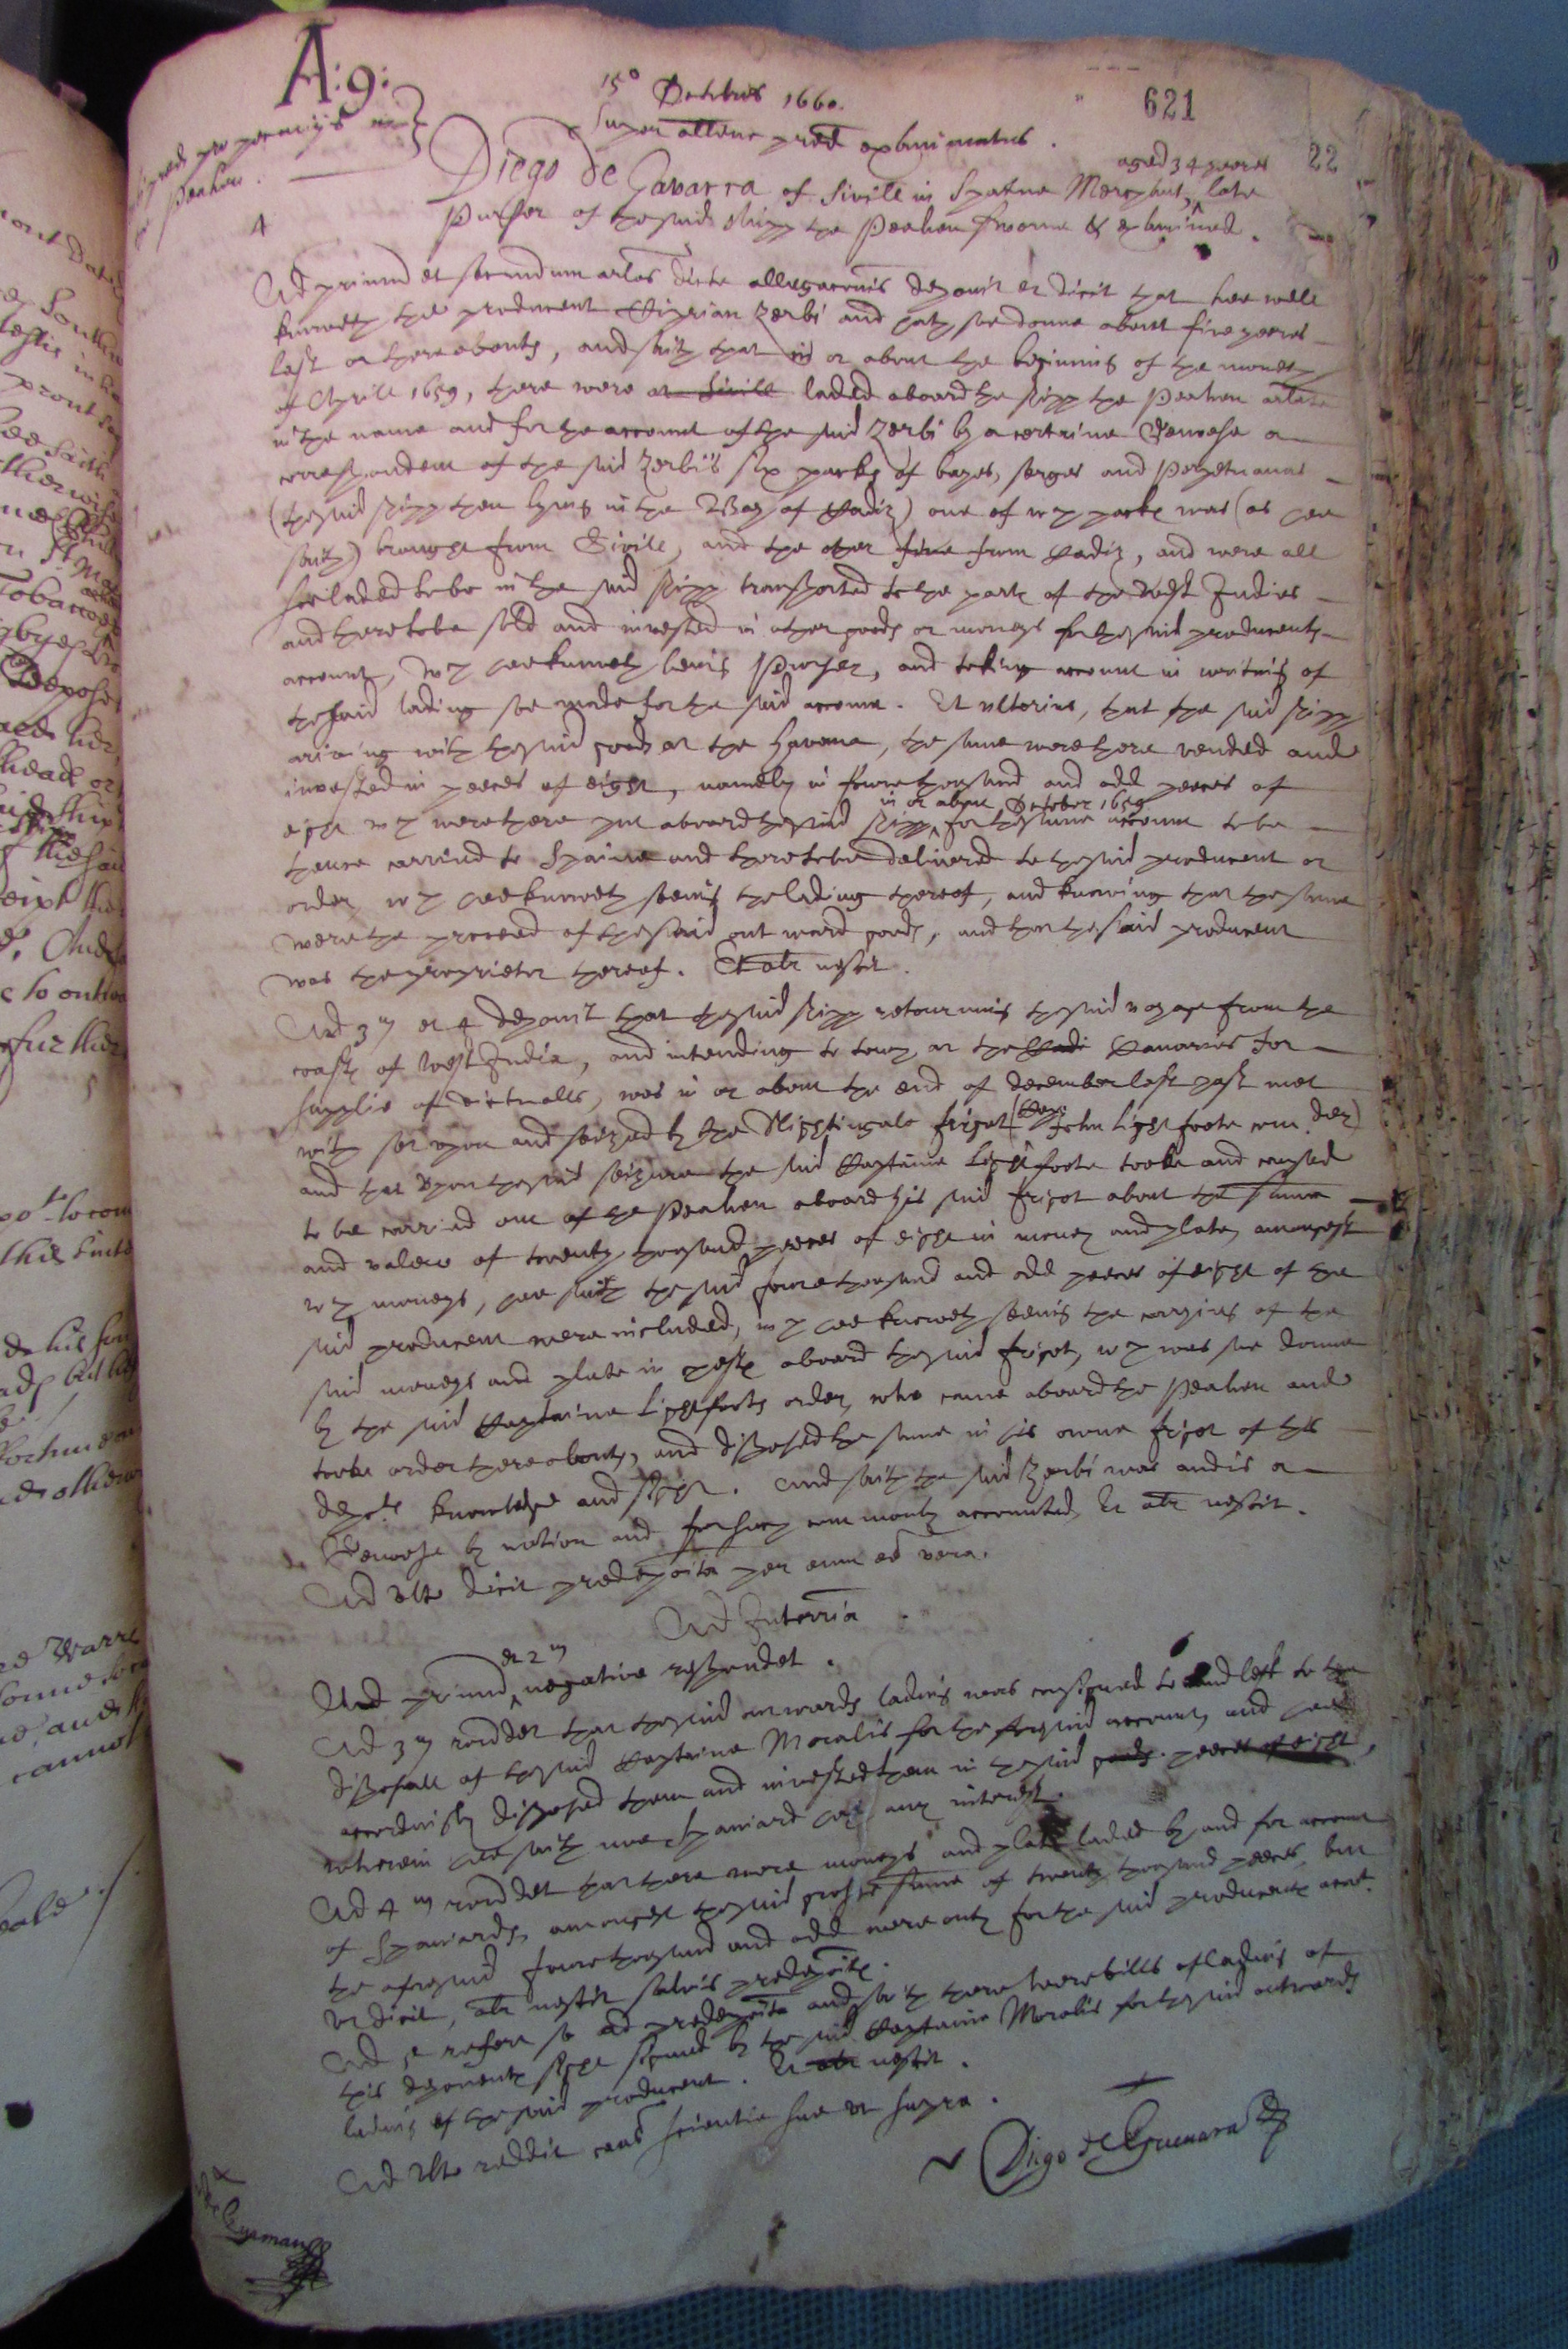 A:9:
15° Octobris 1660.
621
Super allene pred examinatus.
22
aged 34 yeeres
Diego de Gavarra of Sivill in Spaine Merchant, late
4
Purser of the said shipp the Peahen sworne & examined.
Ad primum et secundum arlos dicte allegaconis deponit et dicit that hee well
knoweth the producent Ciprian Zerbi and hath soe donne about five yeeres
last or thereabouts, and saith that in or about the beginning of the moneth
of Aprill 1659, there were at Sivill laded aboard the shipp the Peahen arlate
in the name and for the account of the said Zerbi by a certaine Genoese a
correspondent of the said Zerbi's six packs of bayes, serges and Perpetuanas
(the said shipp then lying in the Bay of Cadiz) one of wch packs was (as hee
saith) brought from Sivill, and the other five from Cadiz, and were all
soe laded to be in the said shipp transported to the parts of the West Indies
and there to be sold and invested in other goods or moneys for the said producents
account, wch hee knoweth being Purser, and taking account in writing of
the said lading soe made for the said account. Et ulterius, that the said shipp
ariving with the said goods at the Havana, the same were there vended and
invested in peeces of eight, namely in foure thousand and odd peeces of
in or about October 1659
eight wch were there put aboard the said shipp for the same account to be
thence carried to Spaine and there to be delivered to the said producent or
order, wch hee knoweth seeing the lading thereof, and knowing that the same
were the proceed of the said outward goods, and that the said producent
was the proprietor thereof. Et alr nescit.
Ad 3m et 4 deponit that the said shipp retourning the said voyage from the
coasts of West India, and intending to touch at the Cadi Canaries for
supplie of victualls, was in or about the end of december last past met
with set upon and seized by the Nightingale frigot (Capt. John Lightfoote comder)
and that upon the said seizure the said Captaine Lightfoote tooke and caused
to be carried out of the Peahen aboard his said frigot about the summe
and valew of twenty thousand peeces of eight in money and plate, amongst
wch moneys, hee saith the said foure thousand and odd peeces of eight of the
said producent were included, wch hee knoweth seeing the carrying of the
said moneys and plate in chests aboard the said frigot, wch was soe donne
by the said Captaine Lightfoots order, who came aboard the Peahen and
tooke order thereabouts, and disposed the same in his owne frigot of this
depots knowledge and sight. And saith the said Zerbi was and is a
Genoese by nation and for such commonly accounted, Et alr nescit.
Ad ulto dicit predeposita per eum esse vera.
Ad Interria
et 2m
Ad primum negative respondet.
Ad 3m rondet that the said outwards lading was consigned to and left to the
disposall of the said Captaine Moralis for the foresaid account, and hee
accordingly disposed them and invested them in the said goods. peeces of eight,
wherein hee saith noe Spaniard had any interest.
Ad 4m rondet that there were moneys and plate laded by and for account
of Spaniards amongst the said grosse summe of twenty thousand peeces, but
the aforesaid foure thousand and odd were only for the said producents accot.
ut dicit, alr nescit salvis predepoitis.
Ad 5 refert se ad predepoita and saith there were bills of lading of
this deponents sight signed by the said Captaine Moralis for the said outwards
lading of the said producent. Et alr nescit.
Ad ulto reddit caas scientie sue ut supra.
Digo de Guevara